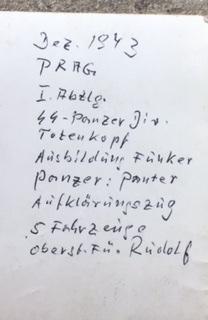 Dez. 1943
PRAG.
I. Abtlg.
44-Panzer Div.
Totenkopf
Ausbildung Funker
Panzer: Panter
Aufklärungszug
5 Fahrzeuge
Oberst. Fü. Rudolf